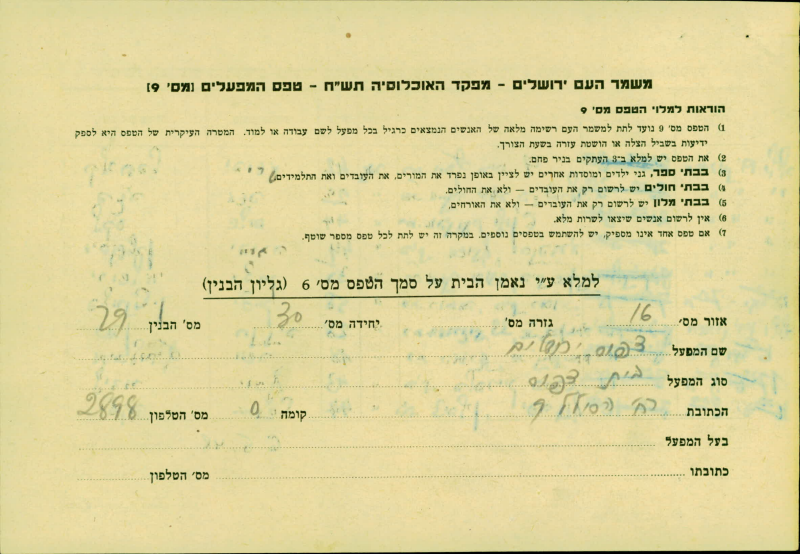 משמר העם ירושלים – מפקד האוכלוסיה תש"ח – טפס המפעלים [מס' 9]
הוראות למלוי הטפס מס' 9
1) הטפס מס' 9 נועד לתת למשמר העם רשימה מלאה של האנשים הנמצאים כרגיל בכל מפעל לשם עבודה או למוד. המטרה העיקרית של הטפס היא לספק
ידיעות בשביל הצלה או הושטת עזרה בשעת הצורך.
2) את הטפס יש למלא ב־3 העתקים בניר פחם.
3) בבתי ספר, גני ילדים ומוסדות אחרים יש לציין באופן נפרד את המורים, את העובדים ואת התלמידים.
4) בבתי חולים יש לרשום רק את העובדים — ולא את החולים.
5) בבתי מלון יש לרשום רק את העובדים — ולא את האורחים.
6) אין לרשום אנשים שיצאו לשרות מלא.
7) אם טפס אחד אינו מספיק, יש להשתמש בטפסים נוספים. במקרה זה יש לתת לכל טפס מספר שוטף.
למלא ע"י נאמן הבית על סמך הטפס מס' 6 (גליון הבנין)
אזור מס' 16 גזרה מס' יחידה מס' 30 מס' הבנין 29
שם המפעל דפוס ירושלים
סוג המפעל בית דפוס
הכתובת רח' הסולל 9 קומה 0 מס' הטלפון 2898
בעל המפעל
כתובתו מס' הטלפון